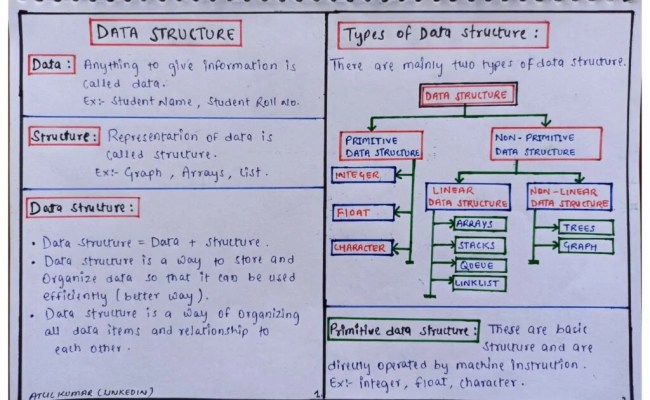 DATA STRUCTURE
Data : Anything to give information is
called data.
Ex:- Student Name, Student Roll No.
Structure : Representation of data is
called structure.
Ex:- Graph, Arrays, List.
Data structure :
• Data structure = Data + structure.
• Data structure is a way to store and
Organize data so that it can be used
efficiently (better way).
• Data structure is a way of organizing
all data items and relationship to
each other.
ATUL KUMAR (LINKEDIN)
1.
Types of Data structure :
There are mainly two types of data structure.
DATA STRUCTURE
PRIMITIVE
DATA STRUCTURE
INTEGER
FLOAT
CHARACTER
NON-PRIMITIVE
DATA STRUCTURE
LINEAR
DATA STRUCTURE
ARRAYS
STACKS
QUEUE
LINKLIST
NON-LINEAR
DATA STRUCTURE
TREES
GRAPH
Primitive data structure : These are basic
structure and are
directly operated by machine instruction.
Ex:- integer, float, character.